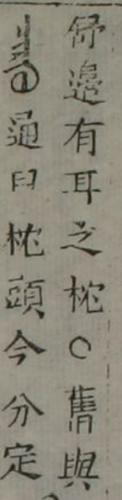 舒邊有耳之枕○舊與
通曰枕頭今分定